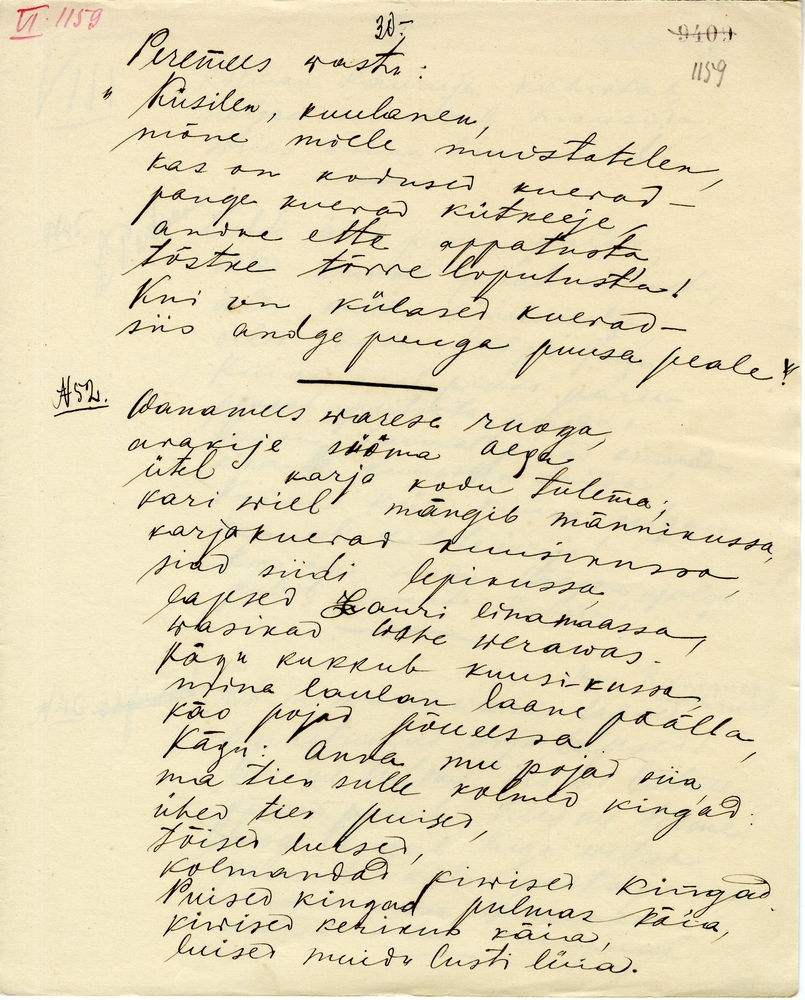 VI. 1159
30.
9409
1159
Peremees wastu:
"Küsilen, kuulanen,
mõne mõele muistatelen,
kas on kodused kuerad –
pange kuerad kütkeeje,
andke ette appatusta
tõstke tõrre loputusta!
Kui on külased kuerad –
siis andge puuga puusa peale!"
N52.
Wanamees warese ruoga,
arakije sööma aega
ütel karja kodu tulema;
kari wiel mängib männikussa,
karjakuerad kuusikussa,
siad siidi lepikussa,
lapsed Lauri linamaassa,
wasikad werawas.
Kägu kukkub kuusikussa,
mina laulan laane päälla,
käo pojad põueessa
Kägu: Anna mu pojad siia,
ma tien sulle kolmed kingad:
ühed tien puised,
tõised luised,
kolmandad kiwised kingad.
Puised kingad pulmas käia,
kiwised kerikus käia,
luised muidu lusti lüia.